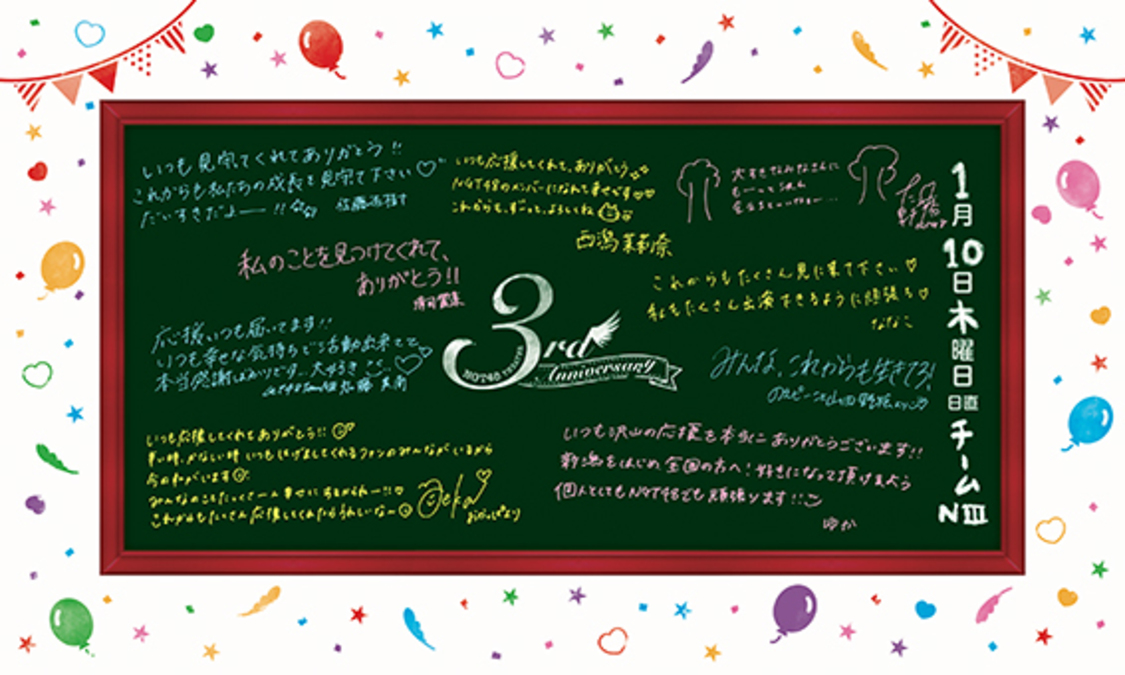 いつも見守てくれてありがとう!!
これからも私たちの成長を見守て下さい♡
だいすきだよー!!
いつも応援してくれて、ありがとう
NGT48のメンバーになれて幸せです♡♡
これからも、ずーっと、よろしくね
西潟茉莉奈
大すきなみなさんに
もーっと
私のことを見つけてくれて、
ありがとう!!
これからもたくさん見に来て下さい♡
私もたくさん出演できるように頑張る♡
ななこ
3rd
Anniversary
NGT48 THEATER
応援いつも届いてます!!
いつも幸せな気持ちで活動出来てて
本当感謝しかないです。大好き
みんな、これからも生きてろ!
いつも応援してくれてありがとう!!
辛い時、かなしい時いつもはげましてくれるファンのみんながいるから
今のわたしがいます
みんなのことたっくさーん幸せに
これからもたーくさん応援してくれたらうれしいなー
いつも沢山の応援を本当にありがとうございます!!
新潟をはじめ全国の方へ!好きになって頂けるよう
個人としてもNGT48でも頑張ります!!
ゆか
1月10日木曜日
日直
チームNⅢ